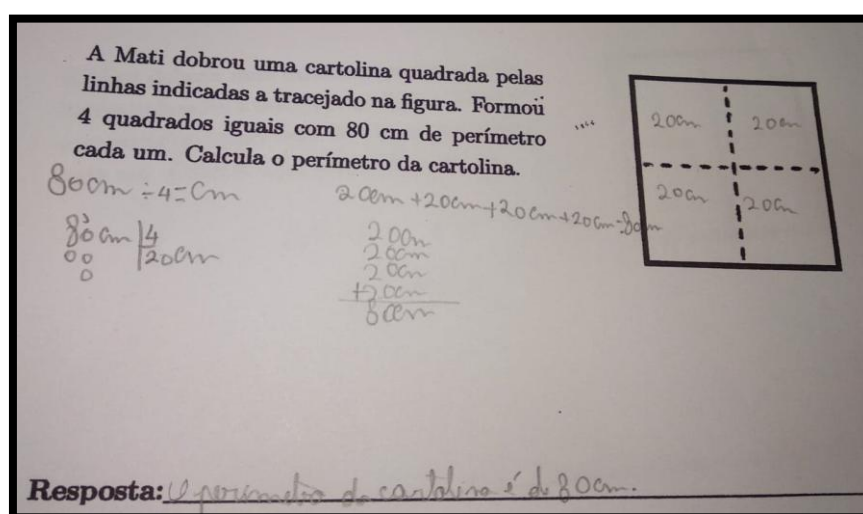 A Mati dobrou uma cartolina quadrada pelas
linhas indicadas a tracejado na figura. Formou
4 quadrados iguais com 80 cm de perímetro
cada um. Calcula o perímetro da cartolina.
20cm 20cm
20cm 20cm
80cm ÷4=Cm
80cm 4
00 20cm
0
20cm +20cm+20cm+20cm=80cm
20cm
20cm
20cm
+20cm
80cm
Resposta: O perímetro da cartolina é de 80cm.